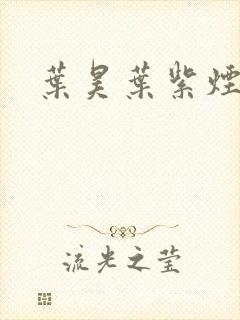 葉昊葉紫煙
流光之莹